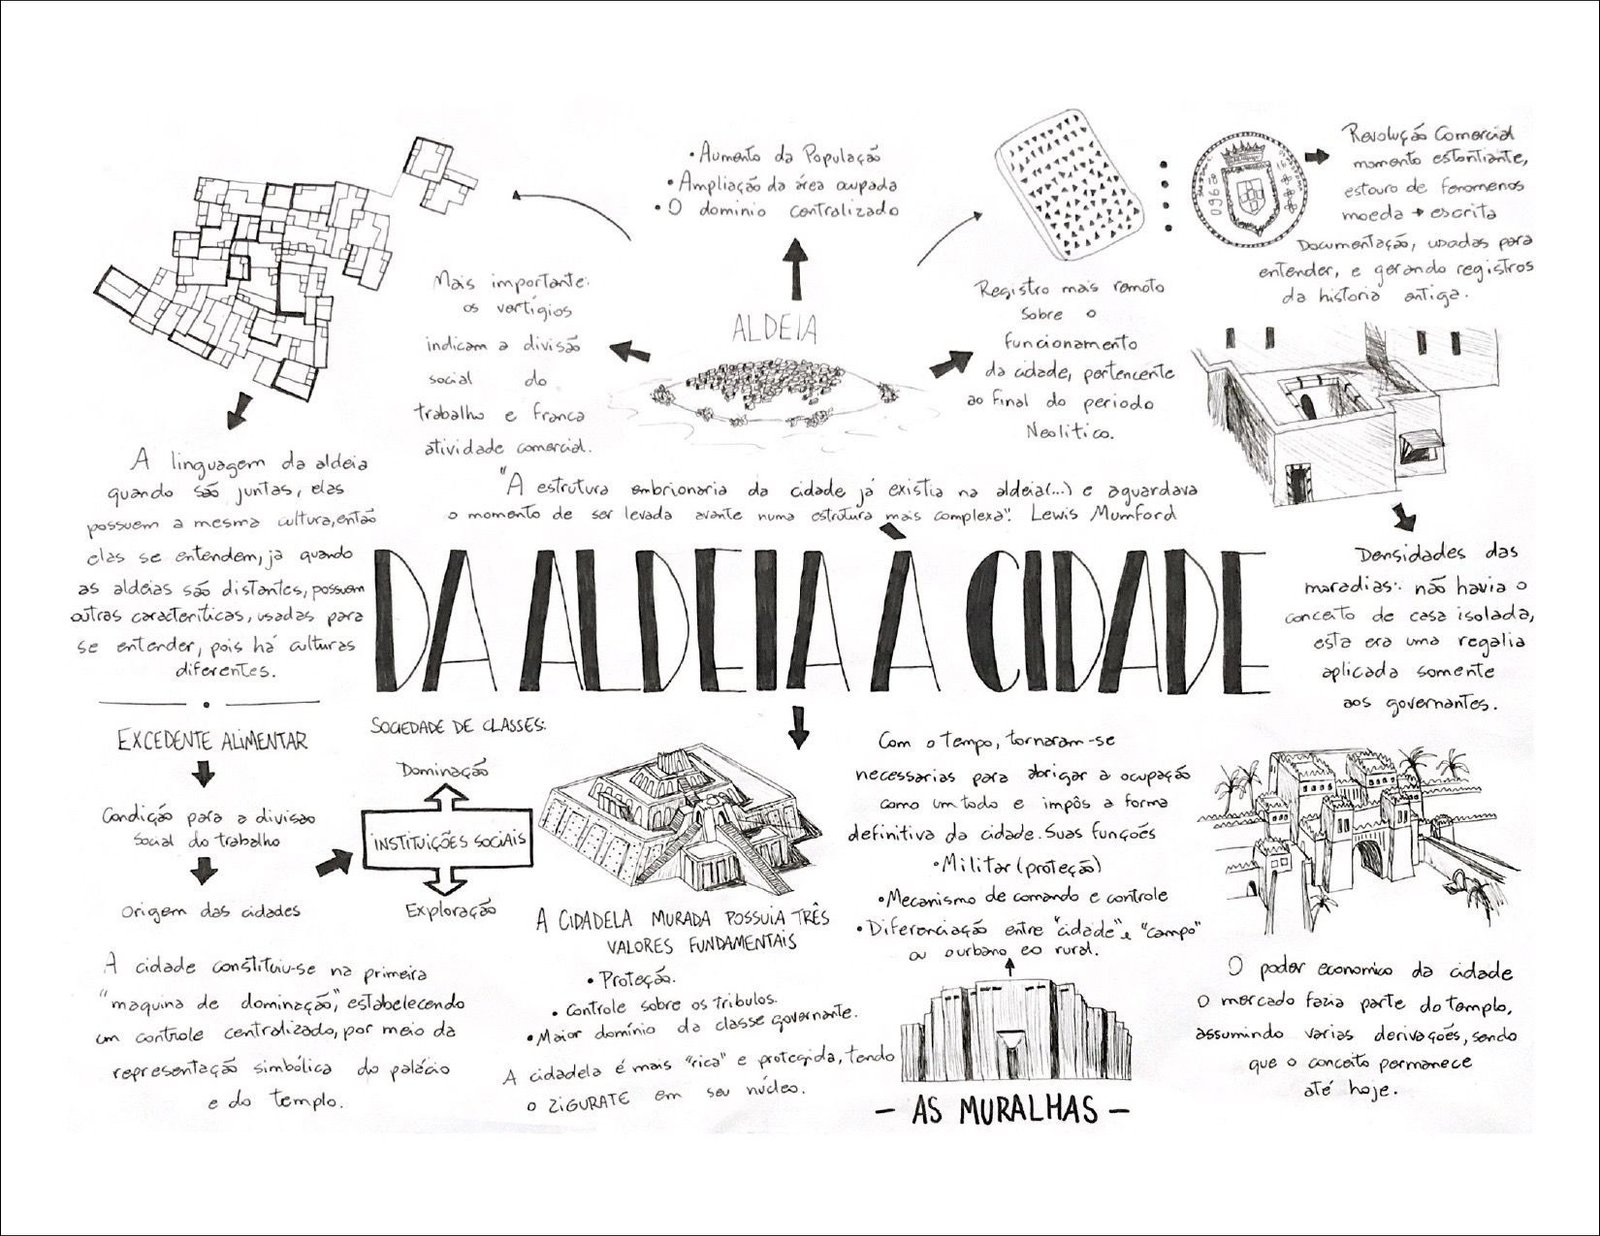 • Aumento da População
• Ampliação da área ocupada
• O dominio centralizado
Revolução Comercial
momento estontiante,
estouro de fenomenos
moeda + escrita
Documentação, usadas para
entender, e gerando registros
da historia antiga.
0962
Mais importante:
os vertígios
indicam a divisão
social do
trabalho e franca
atividade comercial.
ALDEIA
Registro mais remoto
sobre o
funcionamento
da cidade, pertencente
ao final do periodo
Neolitico.
A linguagem da aldeia
quando são juntas, elas
possuem a mesma cultura, então
elas se entendem, ja quando
as aldeias são distantes, possuem
outras caracteriticas, usadas para
se entender, pois há culturas
diferentes.
"A estrutura embrionaria da cidade já existia na aldeia(...) e aguardava
o momento de ser levada avante numa estrutura mais complexa". Lewis Mumford
DA ALDEIA À CIDADE
Densidades das
maradias: não havia o
conceito de casa isolada,
esta era uma regalia
aplicada somente
aos governantes.
EXCEDENTE ALIMENTAR
Condição para a divisão
social do trabalho
Origem das cidades
SOCIEDADE DE CLASSES:
Dominação
INSTITUIÇÕES SOCIAIS
Exploração
A cidade constituiu-se na primeira
"maquina de dominação", estabelecendo
um controle centralizado, por meio da
representação simbólica do palácio
e do templo.
A CIDADELA MURADA POSSUIA TRÊS
VALORES FUNDAMENTAIS
• Proteção.
• Controle sobre os tribulos.
• Maior domínio da classe governante.
A cidadela é mais "rica" e protegida, tendo
o ZIGURATE em seu núcleo.
Com o tempo, tornaram-se
necessarias para abrigar a ocupação
como um todo e impôs a forma
definitiva da cidade. Suas funções
• Militar (proteção)
• Mecanismo de comando e controle
• Diferenciação entre "cidade" e "campo"
ou o urbano e o rural.
- AS MURALHAS -
O poder economico da cidade
O mercado fazia parte do templo,
assumindo varias derivações, sendo
que o conceito permanece
até hoje.